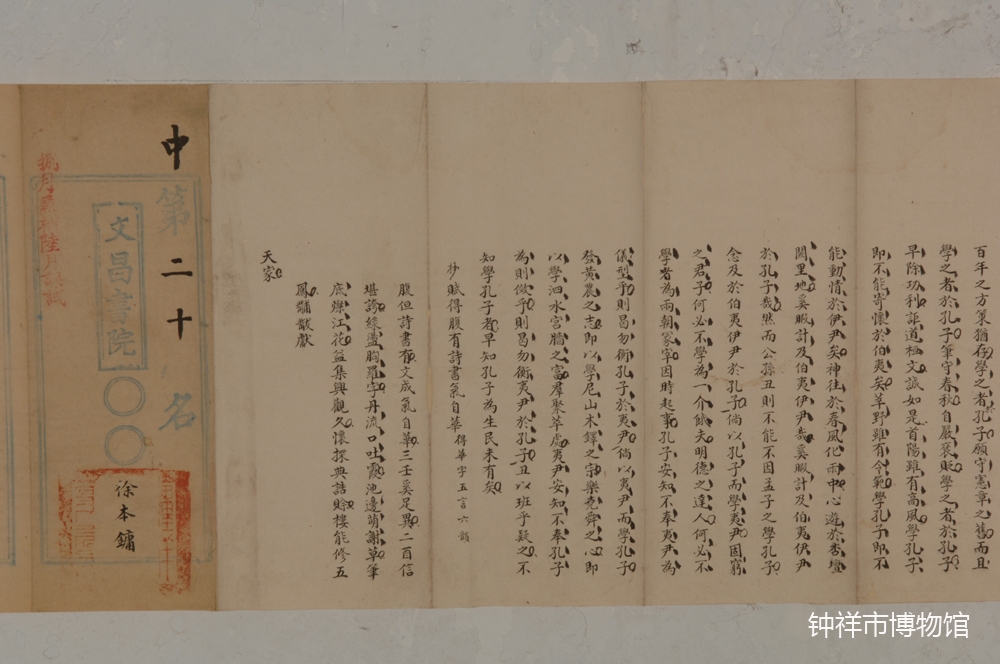 百年之方策猶存學之者孔子願守憲章之舊而且
學之者於孔子筆守春秋自嚴褒貶學之者於孔子
早除功利証道極文誠如是首陽雖有高風學孔子
即不能寄懷於伯夷矣莘野雖有令範學孔子即不
能動情於伊尹矣神往於春風化雨中心遊於杏壇
闕里地奚暇計及伯夷伊尹哉奚暇計及伯夷伊尹
於孔子哉然而公孫丑則不能不因孟子之學孔子
念及於伯夷伊尹於孔子倘以孔子而學夷尹因窮
之君子何必不學為一介餓夫明德之達人何必不
學者為兩朝冢宰因時起事孔子安知不奉夷尹為
儀型乎則曷勿衡孔子於夷尹倘以夷尹而學孔子
發黃農之志即以學尼山木鐸之宗樂堯舜之心即
以學泗水宮牆之富羣聚萃處夷尹安知不奉孔子
為則傚乎則曷勿衡夷尹於孔子丑以班乎疑之不
知學孔子者早知孔子為生民未有矣
抄賦得腹有詩書氣自華得華字五言六韻
腹但詩書有文成氣自華三壬奚足異二百信
堪誇綠盪胸羅字丹流口吐霞池邊萌謝草筆
底燦江花益集興觀久懷探典誥賒樓能修五
鳳黼黻獻
天家
中
第二十名
文昌書院
徐本鏞
钟祥市博物馆